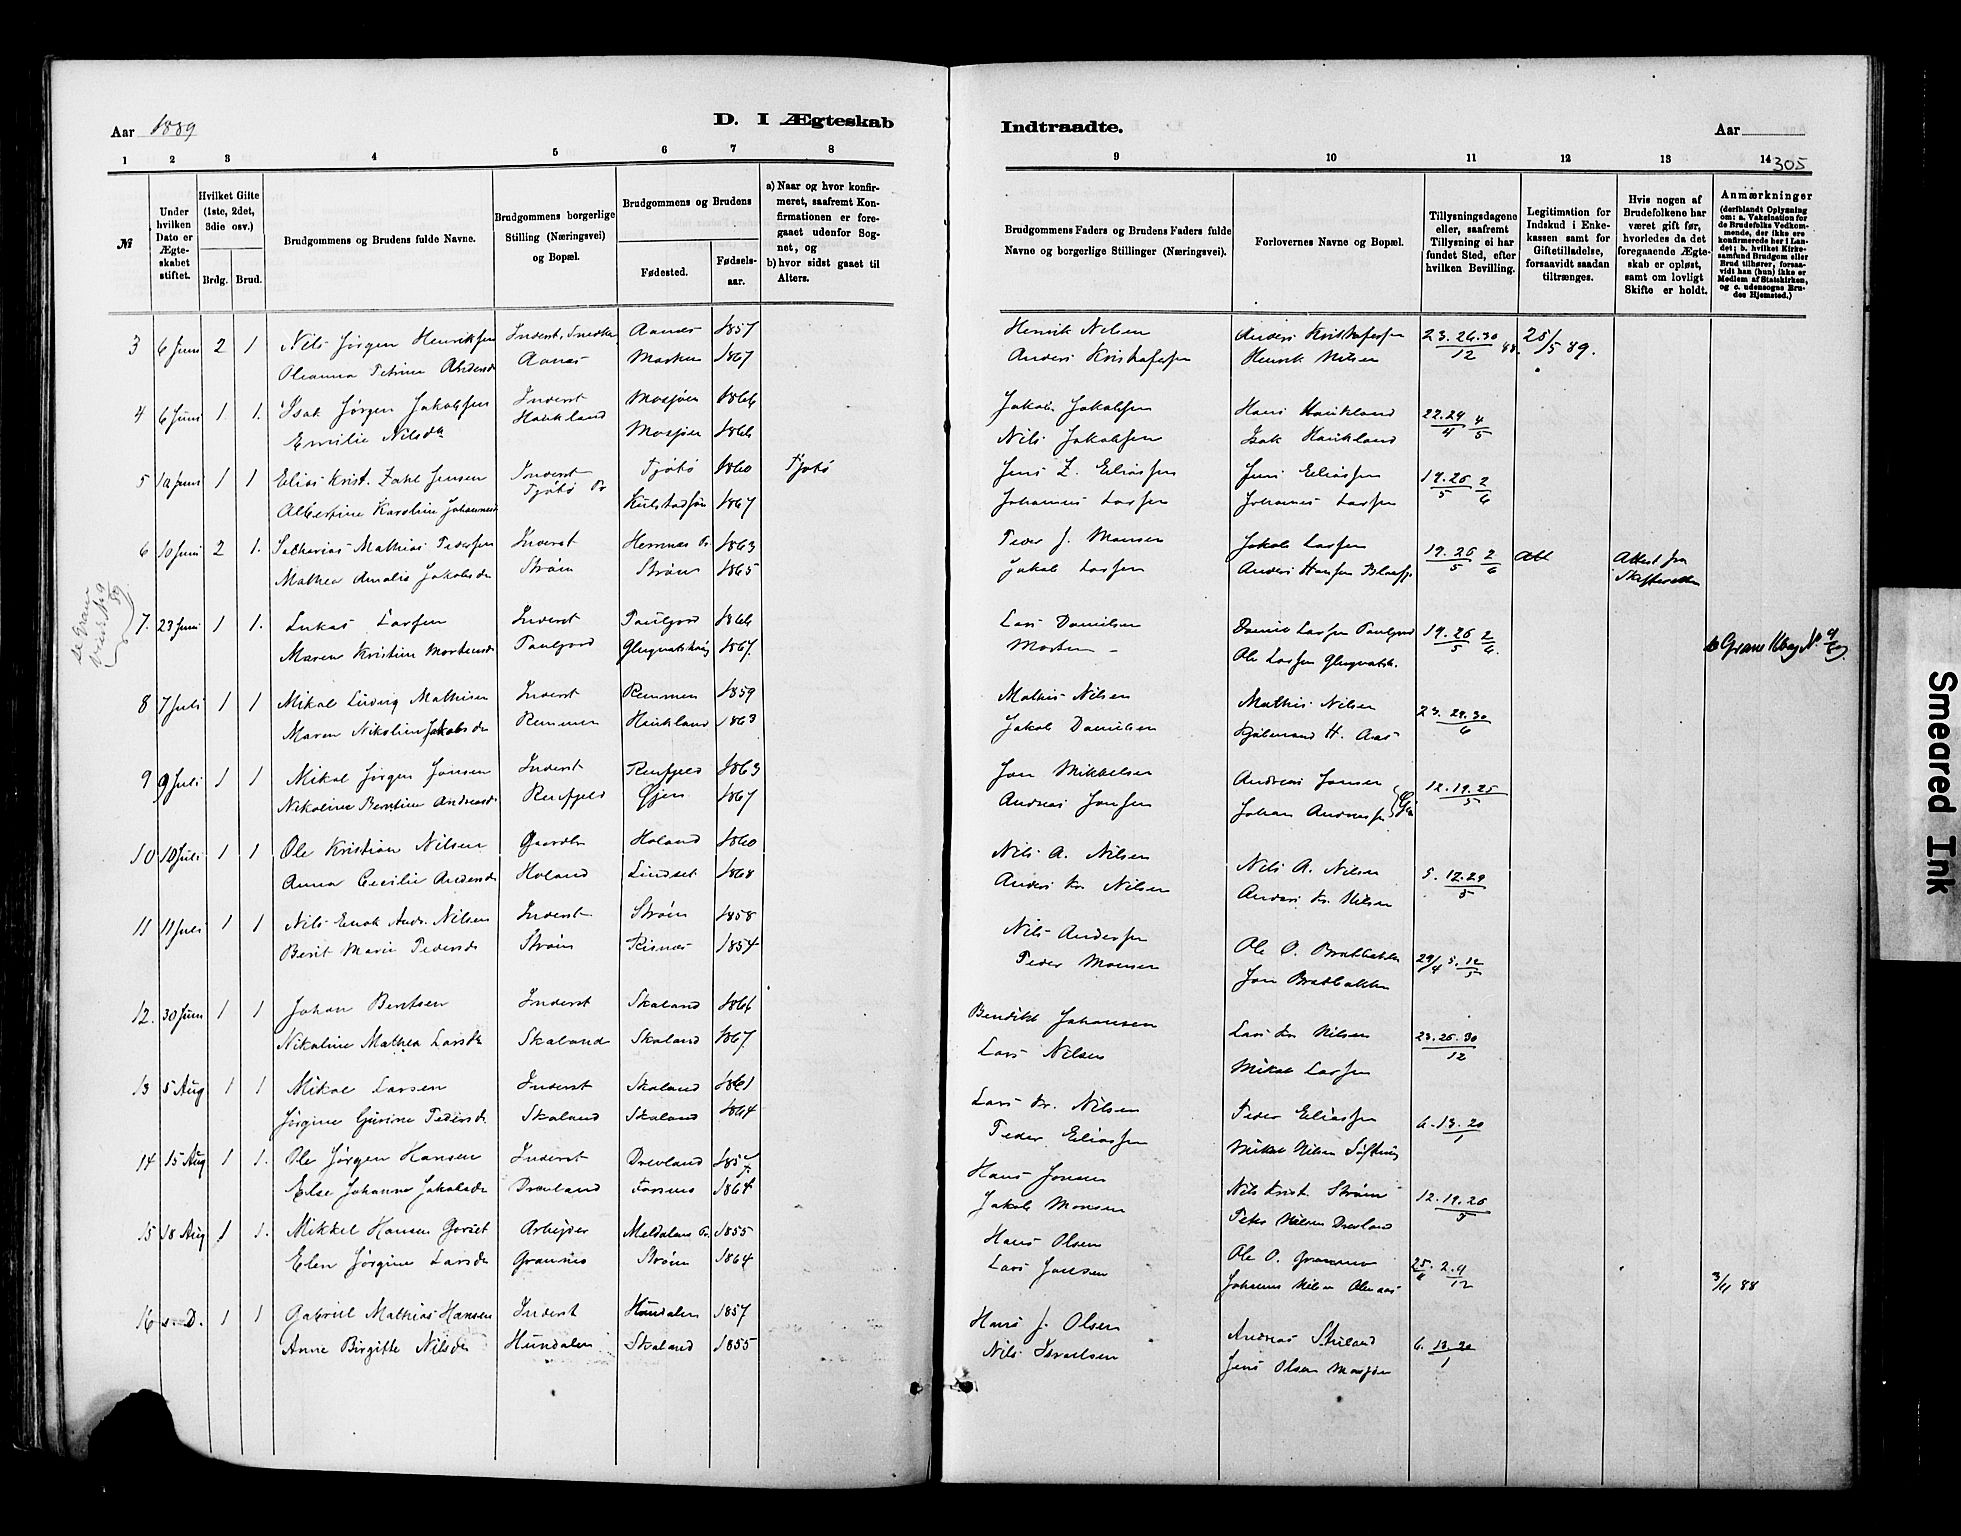 Aar 1889
D. I Ægteskab
1 2 3 4 5 6 7 8
№
Under hvilken Dato er Ægteskabet stiftet.
Hvilket Gifte (1ste, 2det, 3die osv.)
Brdg. Brud.
Brudgommens og Brudens fulde Navne.
Brudgommens borgerlige Stilling (Næringsvei) og Bopæl.
Brudgommens og Brudens
Fødested.
Fødselsaar.
a) Naar og hvor konfirmeret, saafremt Konfirmationen er foregaaet udenfor Sognet, og
b) hvor sidst gaaet til Alters.
3 6 Juni 2 1 Nils Jørgen Henriksen Inderst, Snedker Aanes 1857
Oleanna Petrine Andersd Aanes Marken 1867
4 6 Juni 1. 1. Isak Jørgen Jakobsen Inderst Mosjøen 1866
Emilie Nilsdtr Haukland Mosjøen 1866
5 10 Juni 1 1 Elias Krist. Zahl Jensen Inderst Tjøtø 1860 Tjøtø
Albertine Karoline Johannesd Tjøtø Pr 1867
6 10 Juni 2 1. Sakarias Mathias Pedersen Inderst Hemnæs Pr. 1863
Mathea Amalie Jakobsdr Strøm Strøm 1865
7. 23 Juni 1 1. Lukas Larsen Inderst 1866
Maren Kristine Mortensdr 1867.
8 7 Juli 1 1 Mikal Ludvig Mathisen Inderst Remmen 1859
Maren Nikoline Jakobsdr Remmen Haukland 1863
9 9 Juli 1 1 Mikal Jørgen Jonsen Inderst Renfjeld 1863
Nikoline Berntine Andreasdr Renfjeld Øjen 1867
10 10 Juli 1 1 Ole Kristian Nilsen Gaardbr Holand 1860
Anna Cecilie Andersdr Holand Lindset 1868
11 11 Juli 1 1 Nils Enok Andr. Nilsen Inderst Strøm 1858
Berit Marie Pedersdr Strøm Risnes 1854
12. 30 Juni 1 1 Johan Bentsen Inderst Skaland 1866
Nikoline Mathea Larsdr Skaland Skaland 1867
13 5 Aug 1 1 Mikal Larsen Inderst Skaland 1861
Jørgine Gurine Pedersdr Skaland Skaland 1864
14 15 Aug 1 1. Ole Jørgen Hansen Inderst Drevland 1857
Else Johanna Jakobsdr Drevland Forsnes 1864
15 18 Aug 1 1. Mikkel Hansen Gorset Arbejder Meldalens Pr. 1855
Elen Jørgine Larsdr Grannes Strøm 1864
16 s. D. 1 1 Gabriel Mathias Hansen Inderst Hundalen 1857
Anne Birgitte Nilsdr Hundalen Skaland 1855
Indtraadte.
Aar
305
9 10 11 12 13 14
Brudgommens Faders og Brudens Faders fulde Navne og borgerlige Stillinger (Næringsvei).
Forlovernes Navne og Bopæl.
Tillysningsdagene eller, saafremt Tillysning ei har fundet Sted, efter hvilken Bevilling.
Legitimation for Indskud i Enkekassen samt for Giftetilladelse, forsaavidt saadan tiltrænges.
Hvis nogen af Brudefolkene har været gift før, hvorledes da det foregaaende Ægteskab er opløst, samt om lovligt Skifte er holdt.
Anmærkninger
(deriblandt Oplysning om: a. Vaksination for de Brudefolks Vedkommende, der ikke ere konfirmerede her i Landet; b. hvilket Kirkesamfund Brudgom eller Brud tilhører, forsaavidt han (hun) ikke er Medlem af Statskirken, og c. udensogns Brudes Hjemsted.)
Henrik Nilsen Anders Kristofersen 23. 26. 30/12 88. 25/5 89.
Anders Kristofersen Henrik Nilsen
Jakob Jakobsen Hans Haukland 4/5
Nils Jakobsen Isak Haukland
Jens Z. Eliassen Jens Eliassen 19. 26/5 2/6
Johannes Larsen Johannes Larsen
Peder J. Monsen Jakob Larsen 19. 26/5 2/6 Att Attest fra
Jakob Larsen Anders Hansen Skifteretten
Lars Danielsen Daniel Larsen 19. 26/5 2/6
Morten – Ole Larsen
Mathis Nilsen Mathis Nilsen 23. 29. 30/6
Jakob Danielsen Hjalmand H. Aas
Jon Mikkelsen Andreas Jonsen 12. 19. 25/5
Andreas Jonsen Johan Andreassen
Nils A. Nilsen Nils A. Nilsen 5. 12. 29/5
Anders Kr. Nilsen Anders Kr. Nilsen
Nils Andersen Ole O. Bratbakken 29/4 5. 12/5
Peder Monsen Jon Bratbakken
Bendikt Johansen Lars Kr. Nilsen 23. 26. 30/12
Lars Nilsen Mikal Larsen
Lars Kr. Nilsen Peder Eliassen 6. 13. 20/1
Peder Eliassen Mikal Nilsen
Hans Jonsen Nils Krist. Strøm 12. 19. 26/5
Jakob Monsen Peter Nilsen Drevland
Hans Olsen Ole O. Grannes 2. 9/12 3/11 88
Lars Jonsen Johannes Nilsen
Hans J. Olsen Andreas 6. 13. 20/1
Nils Israelsen Jens Olsen Mosjøen
Smeared Ink